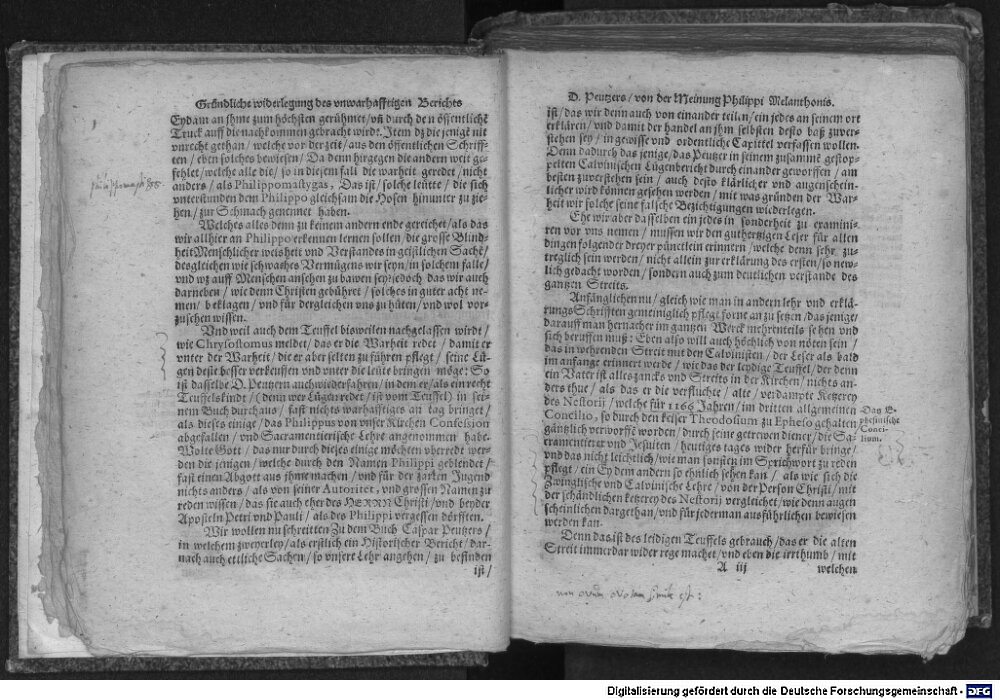 Gründliche widerlegung des vnwarhafftigen Berichts
Eydam an jhme zum höchsten gerühmet/ vñ durch den öffentlichē
Truck auff die nachkommen gebracht wirdt. Item dz die jenigē nit
vnrecht gethan/ welche vor der zeit/ aus den öffentlichen Schriff-
ten/ eben solches bewiesen/ Da denn hirgegen die andern weit ge-
fehlet/ welche alle die/ so in diesem fall die warheit geredet/ nicht
anders/ als Philippomastygas, Das ist/ solche leütte/ die sich
vnterstunden dem Philippo gleichsam die Hosen hinunter zu zie-
hen/ zur Schmach genennet haben.
Welches alles denn zu keinem andern ende gereichet/ als das
wir allhier an Philippo erkennen lernen sollen/ die grosse Blind-
heit Menschlicher weisheit vnd Verstandes in geistlichen Sachē/
desgleichen wie schwaches Vermügens wir seyn/ in solchem falle/
vnd wz auff Menschen ansehen zu bawen sey: jedoch das wir auch
darneben/ wie denn Christen gebühret/ solches in guter acht ne-
men/ beklagen/ vnd für dergleichen vns zu hüten/ vnd wol vor-
zusehen wissen.
Vnd weil auch dem Teuffel bisweilen nachgelassen wirdt/
wie Chrysostomus meldet/ das er die Warheit redet/ damit er
vnter der Warheit/ die er aber selten zu führen pflegt/ seine Lü-
gen deste besser verkeussen vnd vnter die leüte bringen möge: So
ist dasselbe D. Peutzern auch wiederfahren/ in dem er/ als ein recht
Teuffelskindt/ (denn wer Lügen redet/ ist vom Teuffel) in sei-
nem Buch durchaus/ fast nichts warhafftiges an tag bringet/
als dieses einige/ das Philippus von vnser Kirchen Confession
abgefallen/ vnd Sacramentierische Lehre angenommen habe.
Wolte Gott/ das nur durch dieses einige möchten vberredt wer-
den die jenigen/ welche durch den Namen Philippi geblendet/
fast einen Abgott aus jhme machen/ vnd für der zarten Jugend
nichts anders/ als von seiner Autoritet, vnd grossen Namen zu
reden wissen/ das sie auch eher des HERRN Christi/ vnd beyder
Aposteln Petri vnd Pauli/ als des Philippi vergessen dörfften.
Wir wollen nu schreitten Zu dem Buch Caspar Peutzers/
in welchem zweyerley/ als erstlich ein Historischer Bericht/ dar-
nach auch ettliche Sachen/ so vnsere Lehr angehen/ zu befinden
ist/
D. Peutzers/ von der Meinung Philippi Melanthonis.
ist/ das wir denn auch von einander teilen/ ein jedes an seinem ort
erklären/ vnd damit der handel an jhm selbsten desto baß zuver-
stehen sey/ in gewisse vnd ordentliche Capittel verfassen wollen.
Denn dadurch das jenige/ das Peutzer in seinem zusammē gestop-
pelten Calvinischen Lügenbericht durch einander geworffen/ am
besten zuverstehen sein/ auch desto klärlicher vnd augenschein-
licher wird können gesehen werden/ mit was gründen der War-
heit wir solche seine falsche Bezichtigungen wiederlegen.
Ehe wir aber dasselben ein jedes in sonderheit zu examini-
ren vor vns nemen/ mussen wir den guthertzigen Leser für allen
dingen folgender dreyer pünctlein erinnern/ welche denn sehr zu-
treglich sein werden/ nicht allein zur erklärung des ersten/ so new-
lich gedacht worden/ sondern auch zum deutlichen verstande des
gantzen Streits.
Anfänglichen nu/ gleich wie man in andern lehr vnd erklä-
rungs Schrifften gemeiniglich pflegt forne an zu setzen/ das jenige/
darauff man hernacher im gantzen Werck mehrenteils sehen vnd
sich beruffen muß: Eben also will auch höchlich von nöten sein/
das in wehrenden Streit mit den Calvinisten/ der Leser als bald
im anfange erinnert werde/ wie das der leydige Teuffel/ der denn
ein Vater ist alles zancks vnd Streits in der Kirchen/ nichts an-
ders thue/ als das er die verfluchte/ alte/ verdampte Ketzerey
des Nestorij/ welche für 1166 Jahren/ im dritten allgemeinen
Concilio, so durch den keiser Theodosium zu Epheso gehalten
gäntzlich verworffē worden/ durch seine getrewen diener/ die Sa-
cramentierer vnd Jesuiten/ heutiges tages wider herfür bringe/
vnd das nicht leichtlich/ wie man sonsten im Sprichwort zu reden
pflegt/ ein Ey dem andern so ehnlich sehen kan/ als wie sich die
Zwinglische vnd Calvinische Lehre/ von der Person Christi/ mit
der schändlichen ketzerey des Nestorij vergleichet/ wie denn augen
scheinlichen dargethan/ vnd für jederman ausführlichen bewiesen
werden kan.
Denn das ist des leidigen Teuffels gebrauch/ das er die alten
Streit immerdar wider rege machet/ vnd eben die irrthumb/ mit
A iij welchen
Das E-
phesinische
Conci-
lium.
non ovum ovo tam simile est:
Digitalisierung gefördert durch die Deutsche Forschungsgemeinschaft - DFG